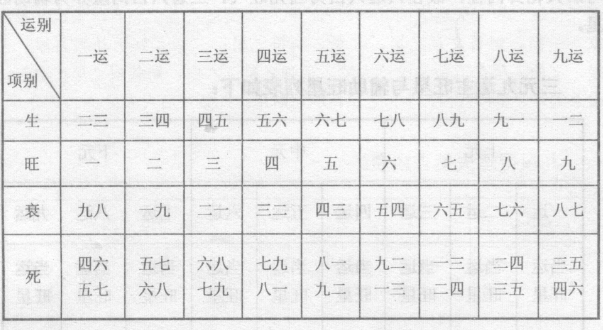 运别 一运 二运 三运 四运 五运 六运 七运 八运 九运
项别
生 二三 三四 四五 五六 六七 七八 八九 九一 一二
旺 一 二 三 四 五 六 七 八 九
衰 九八 一九 二一 三二 四三 五四 六五 七六 八七
死 四六 五七 六八 七九 八一 九二 一三 二四 三五
五七 六八 七九 八一 九二 一三 二四 三五 四六